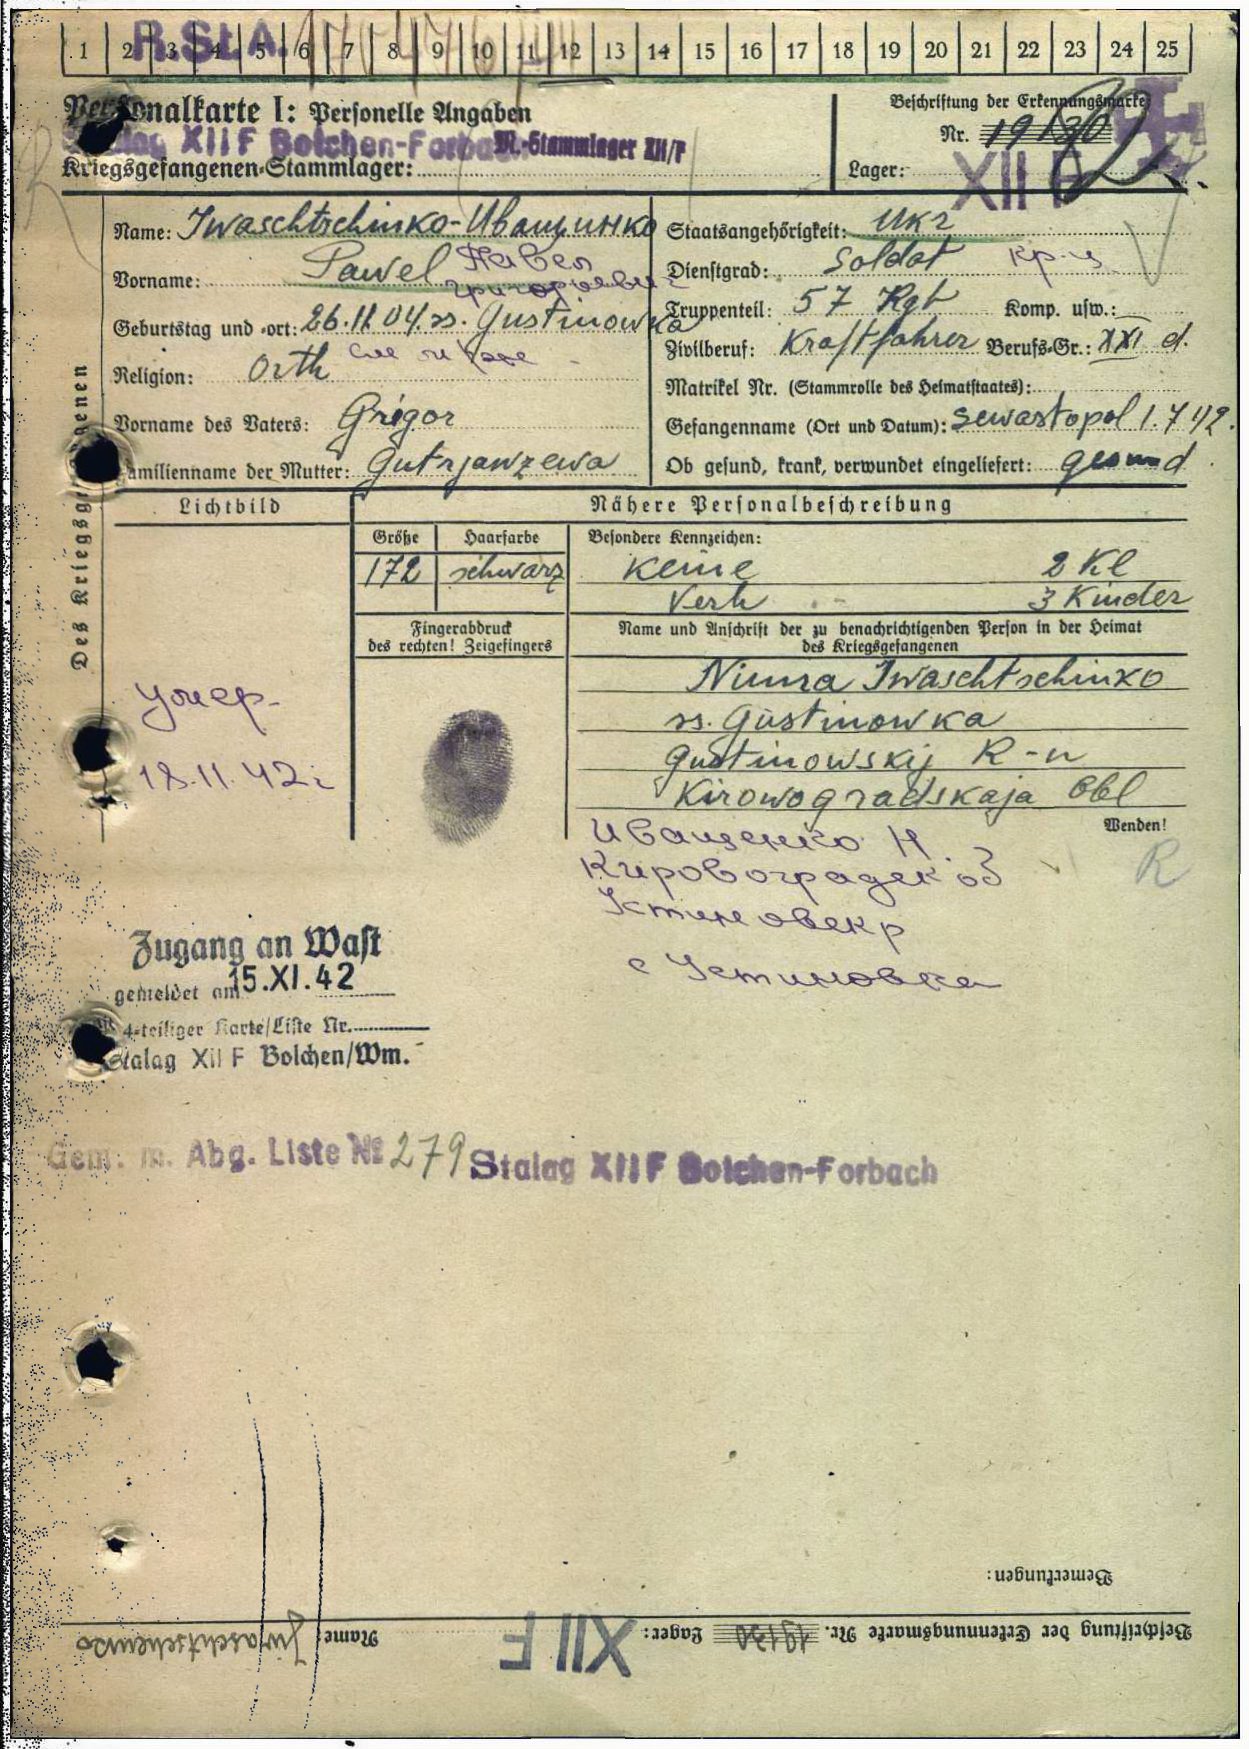 1 2 3 4 5 6 7 8 9 10 11 12 13 14 15 16 17 18 19 20 21 22 23 24 25
R.St.A.
Personalkarte I: Personelle Angaben
Beschriftung der Erkennungsmarke
Nr. 19130
Stalag XII F Bolchen-Forbach M.-Stammlager XII/F
Kriegsgefangenen-Stammlager:
Lager: XII F
Des Kriegsgefangenen
Name: Iwaschtschinko-Иващинко
Vorname: Pawel Павел
Григорьевич
Geburtstag und -ort: 26.11.04. ss. Gustinowka
Religion: Orth
Vorname des Vaters: Grigor
Familienname der Mutter: Gutrjanzewa
Staatsangehörigkeit: Ukr
Dienstgrad: Soldat кр-ц
Truppenteil: 57 Rgt Komp. usw.:
Zivilberuf: Kraftfahrer Berufs-Gr.: XXI d.
Matrikel Nr. (Stammrolle des Heimatstaates):
Gefangenname (Ort und Datum): Sewastopol 1.7.42.
Ob gesund, krank, verwundet eingeliefert: gesund
Lichtbild
Nähere Personalbeschreibung
Größe Haarfarbe Besondere Kennzeichen:
172 schwarz keine 2 Kl
Verh 3 Kinder
Fingerabdruck
des rechten! Zeigefingers
Name und Anschrift der zu benachrichtigenden Person in der Heimat
des Kriegsgefangenen
Iwaschtschinko
ss. Gustinowka
Gustinowskij R-n
Kirowogradskaja Obl
Wenden!
умер-
18.11.42г
Иващенко Н.
Кировоградск об
Устиновск р
с Устиновка
R
Zugang an Wast
gemeldet am 15.XI.42
mit 4-teiliger Karte/Liste Nr.
Stalag XII F Bolchen/Wm.
Gem. m. Abg. Liste № 279 Stalag XII F Bolchen-Forbach
Bemerkungen:
Beschriftung der Erkennungsmarke Nr. 19130 Lager: XII F Name: Iwaschtschenko